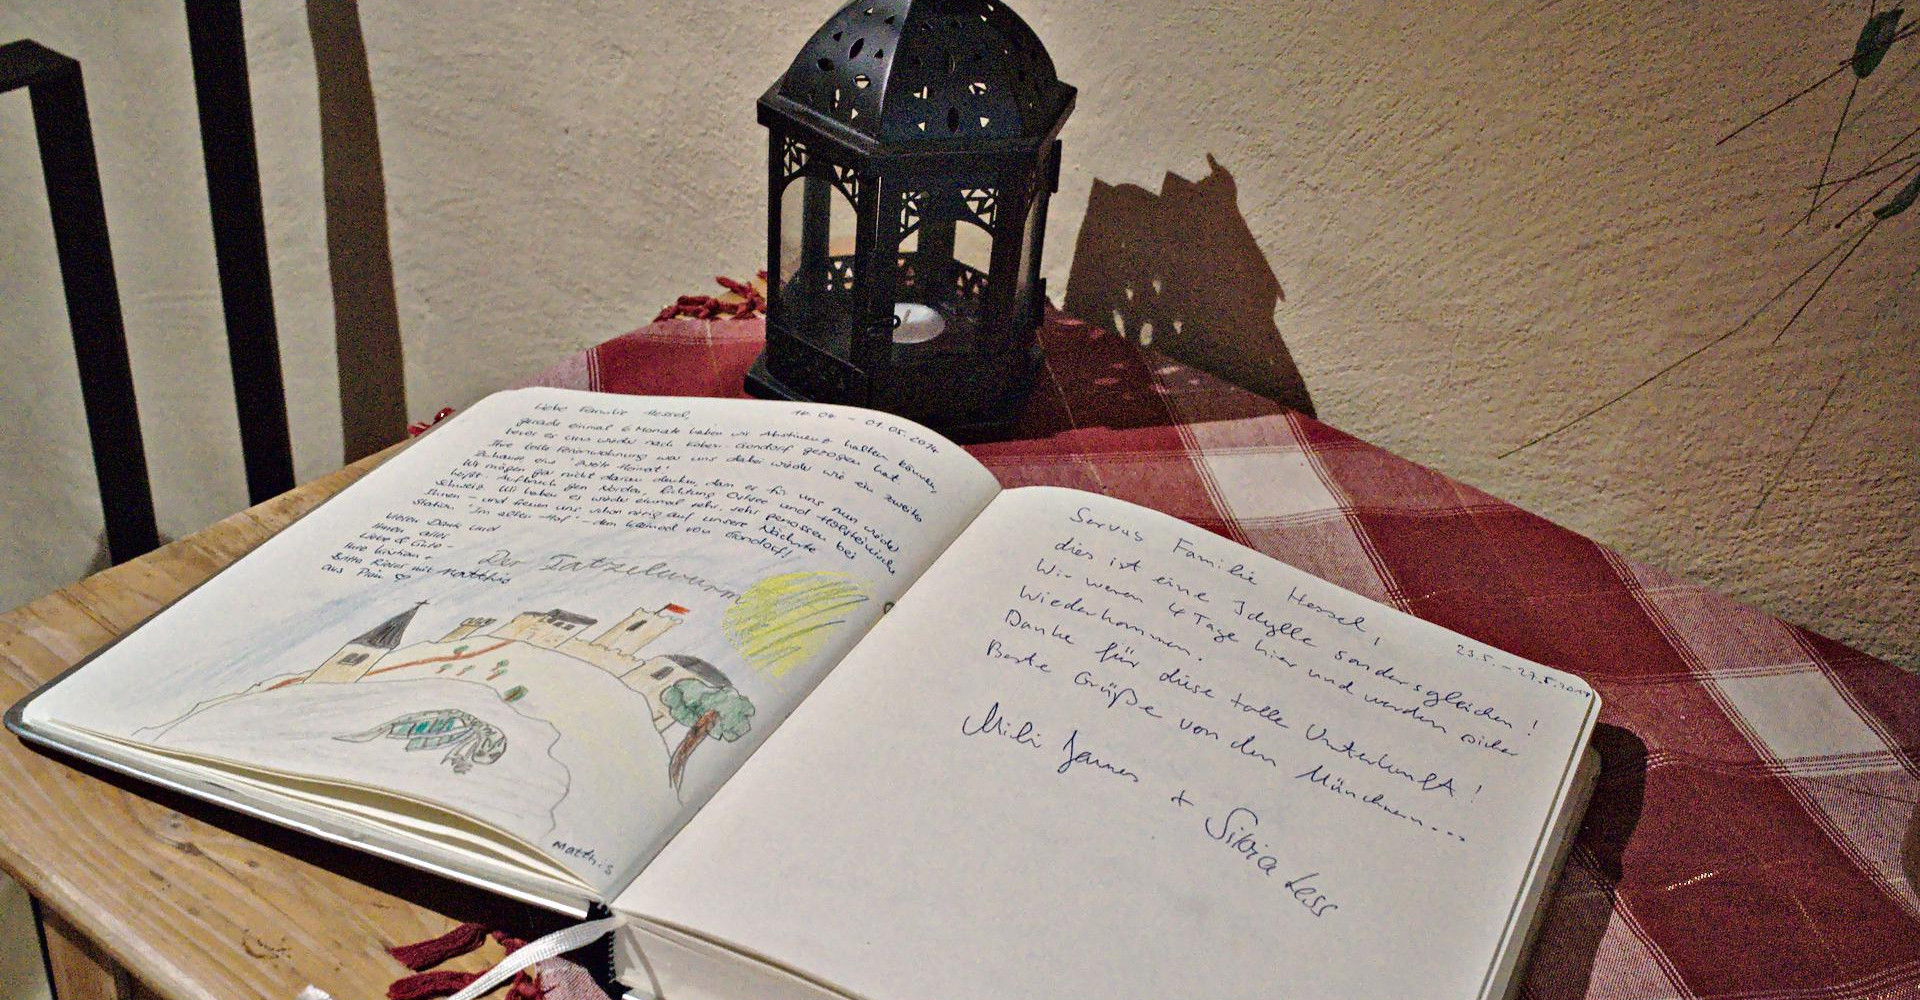 Liebe Familie Hessel, 16.04. – 01.05.2014
gerade einmal 6 Monate haben wir Abstinenz halten können,
bevor es uns wieder nach Kobern-Gondorf gezogen hat.
Ihre tolle Ferienwohnung war uns dabei wieder wie ein zweites
Zuhause, eine zweite Heimat!
Wir mögen gar nicht daran denken, dass es für uns nun wieder
heißt: Aufbruch gen Norden, Richtung Ostsee und Holsteinische
Schweiz. Wir haben es wieder einmal sehr, sehr genossen bei
Ihnen – und freuen uns schon riesig auf unsere Nächste
Station "Im alten Hof" – dem Kleinod von Gondorf!
Vielen Dank und
Ihnen alles
Liebe & Gute –
Ihre
Britta mit Matthis
aus
Der Tatzelwurm
Matthis
Servus Familie Hessel,
23.5. – 27.5.2014
dies ist eine Idylle sondersgleichen!
Wir waren 4 Tage hier und werden sicher
Wiederkommen.
Danke für diese tolle Unterkunft!
Beste Grüße von den Münchnern...
+ Silvia Less